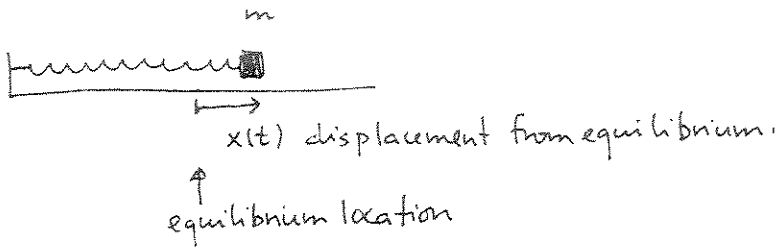 m
x(t) displacement from equilibrium.
equilibrium location